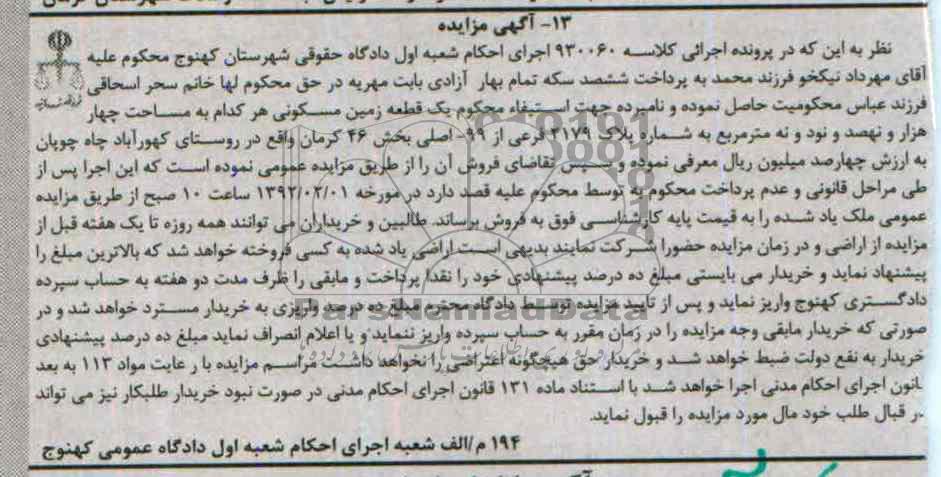 ۱۳- آگهی مزایده
نظر به این که در پرونده اجرائی کلاسه ۹۳۰۰۶۰ اجرای احکام شعبه اول دادگاه حقوقی شهرستان کهنوج محکوم علیه
آقای مهرداد نیکخو فرزند محمد به پرداخت ششصد سکه تمام بهار آزادی بابت مهریه در حق محکوم لها خانم سحر اسحاقی
فرزند عباس محکومیت حاصل نموده و نامبرده جهت استیفاء محکوم یک قطعه زمین مسکونی هر کدام به مساحت چهار
هزار و نهصد و نود و نه مترمربع به شماره پلاک ۲۱۷۹ فرعی از ۹۹- اصلی بخش ۴۶ کرمان واقع در روستای کهورآباد چاه چوپان
به ارزش چهارصد میلیون ریال معرفی نموده و سپس تقاضای فروش آن را از طریق مزایده عمومی نموده است که این اجرا پس از
طی مراحل قانونی و عدم پرداخت محکوم به توسط محکوم علیه قصد دارد در مورخه ۱۳۹۲/۰۲/۰۱ ساعت ۱۰ صبح از طریق مزایده
عمومی ملک یاد شده را به قیمت پایه کارشناسی فوق به فروش برساند. طالبین و خریداران می توانند همه روزه تا یک هفته قبل از
مزایده از اراضی و در زمان مزایده حضورا شرکت نمایند بدیهی است اراضی یاد شده به کسی فروخته خواهد شد که بالاترین مبلغ را
پیشنهاد نماید و خریدار می بایستی مبلغ ده درصد پیشنهادی خود را نقدا پرداخت و مابقی را ظرف مدت دو هفته به حساب سپرده
دادگستری کهنوج واریز نماید و پس از تایید مزایده توسط دادگاه محترم مبلغ ده درصد واریزی به خریدار مسترد خواهد شد و در
صورتی که خریدار مابقی وجه مزایده را در زمان مقرر به حساب سپرده واریز ننماید و یا اعلام انصراف نماید مبلغ ده درصد پیشنهادی
خریدار به نفع دولت ضبط خواهد شد و خریدار حق هیچگونه اعتراضی را نخواهد داشت مراسم مزایده با رعایت مواد ۱۱۳ به بعد
انون اجرای احکام مدنی اجرا خواهد شد با استناد ماده ۱۳۱ قانون اجرای احکام مدنی در صورت نبود خریدار طلبکار نیز می تواند
ر قبال طلب خود مال مورد مزایده را قبول نماید.
۱۹۴ م/الف شعبه اجرای احکام شعبه اول دادگاه عمومی کهنوج
ParsNamadData